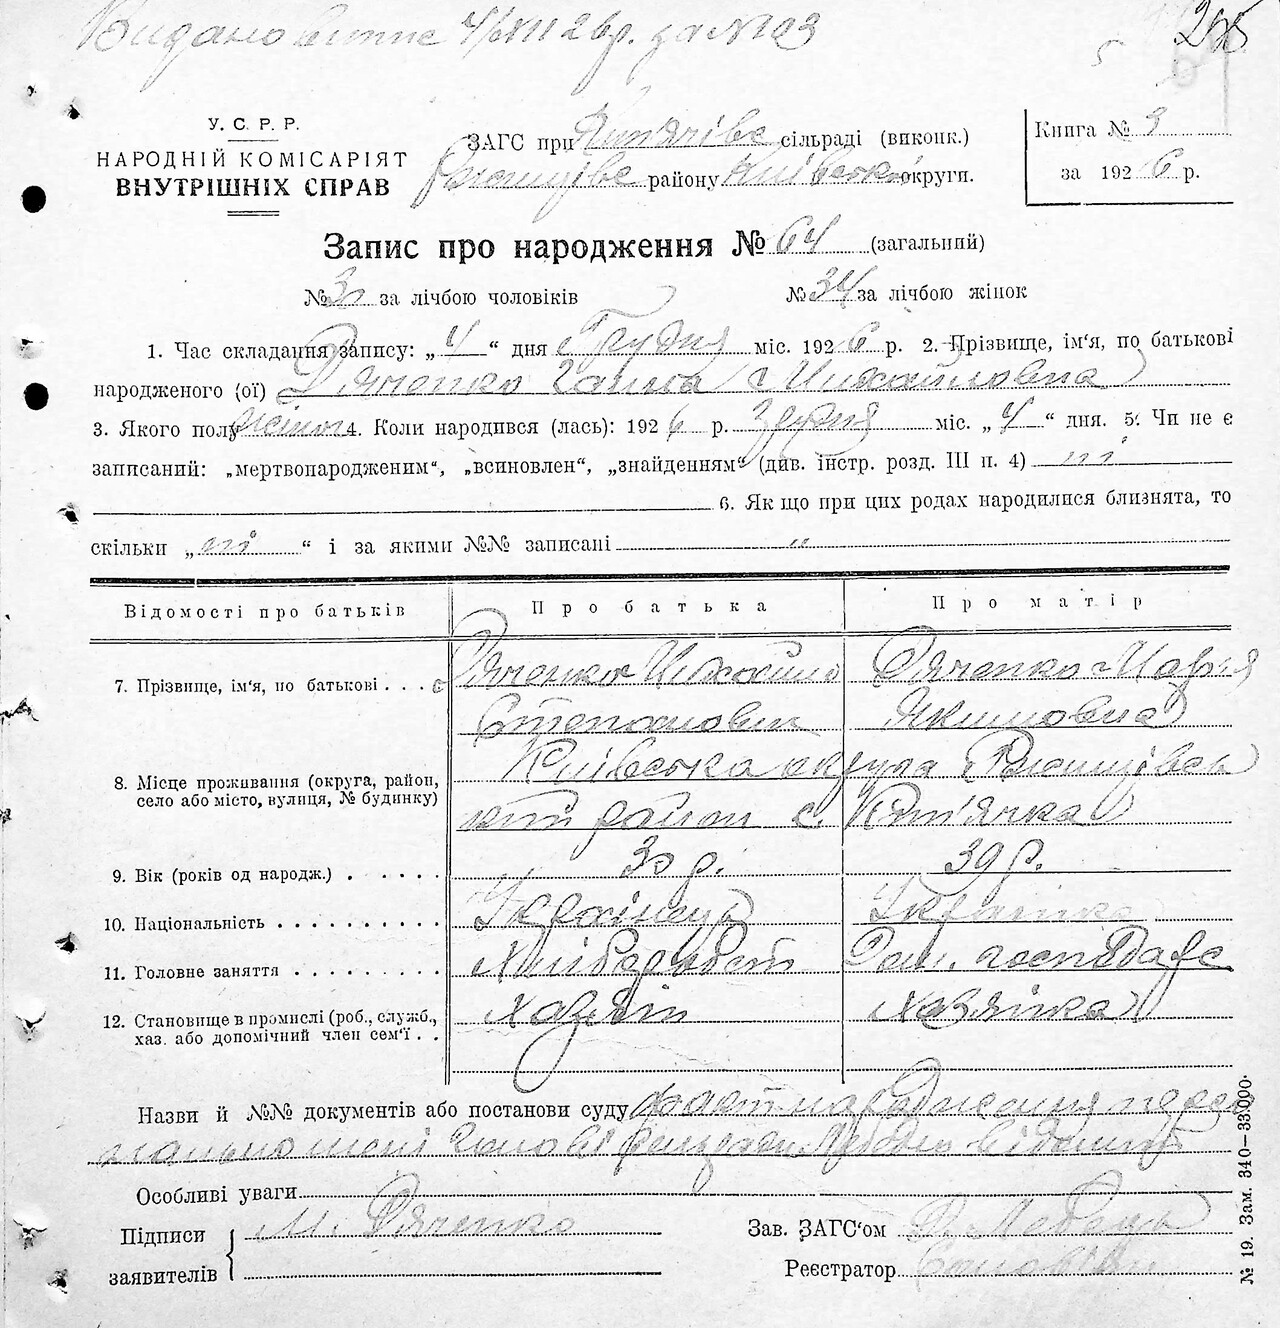 Видано виписс 4/XII 26р. за №103
У. С. Р. Р.
НАРОДНІЙ КОМІСАРІЯТ
ВНУТРІШНІХ СПРАВ
ЗАГС при сільраді (виконк.)
району Київської округи.
Книга № 3
за 1926 р.
Запис про народження № 64 (загальний)
№ 30 за лічбою чоловіків № 34 за лічбою жінок
1. Час складання запису: „4“ дня Грудня міс. 1926 р. 2. Прізвище, ім'я, по батькові
народженого (ої) Дяченко Ганна Михайловна
3. Якого полу жіноч 4. Коли народився (лась): 1926 р. Грудня міс. „4“ дня. 5. Чи не є
записаний: „мертвонародженим“, „всиновлен“, „знайденням“ (див. інстр. розд. III п. 4) ні
6. Як що при цих родах народилися близнята, то
скільки „ні“ і за якими №№ записані „
Відомості про батьків Про батька Про матір
7. Прізвище, ім'я, по батькові . . . Дяченко Михайло Дяченко Марія
Степанович Якимовна
8. Місце проживання (округа, район, Київська округа
село або місто, вулиця, № будинку) кий район с. Кип'ячка
9. Вік (років од народж.) . . . . . 30 р. 30 р.
10. Національність . . . . . . . . . . Українець Українка
11. Головне заняття . . . . . . . . . Хлібороб Дом. господарс
12. Становище в промислі (роб., служб., Хазяїн Хазяйка
хаз. або допомічний член сем'ї . .
Назви й №№ документів або постанови суду факт народження персо
нально мені сільради Лебедю відомий
Особливі уваги
Підписи М. Дяченко Зав. ЗАГС'ом Лебедь
заявителів Реєстратор
№ 19. Зам. 340—33.000.